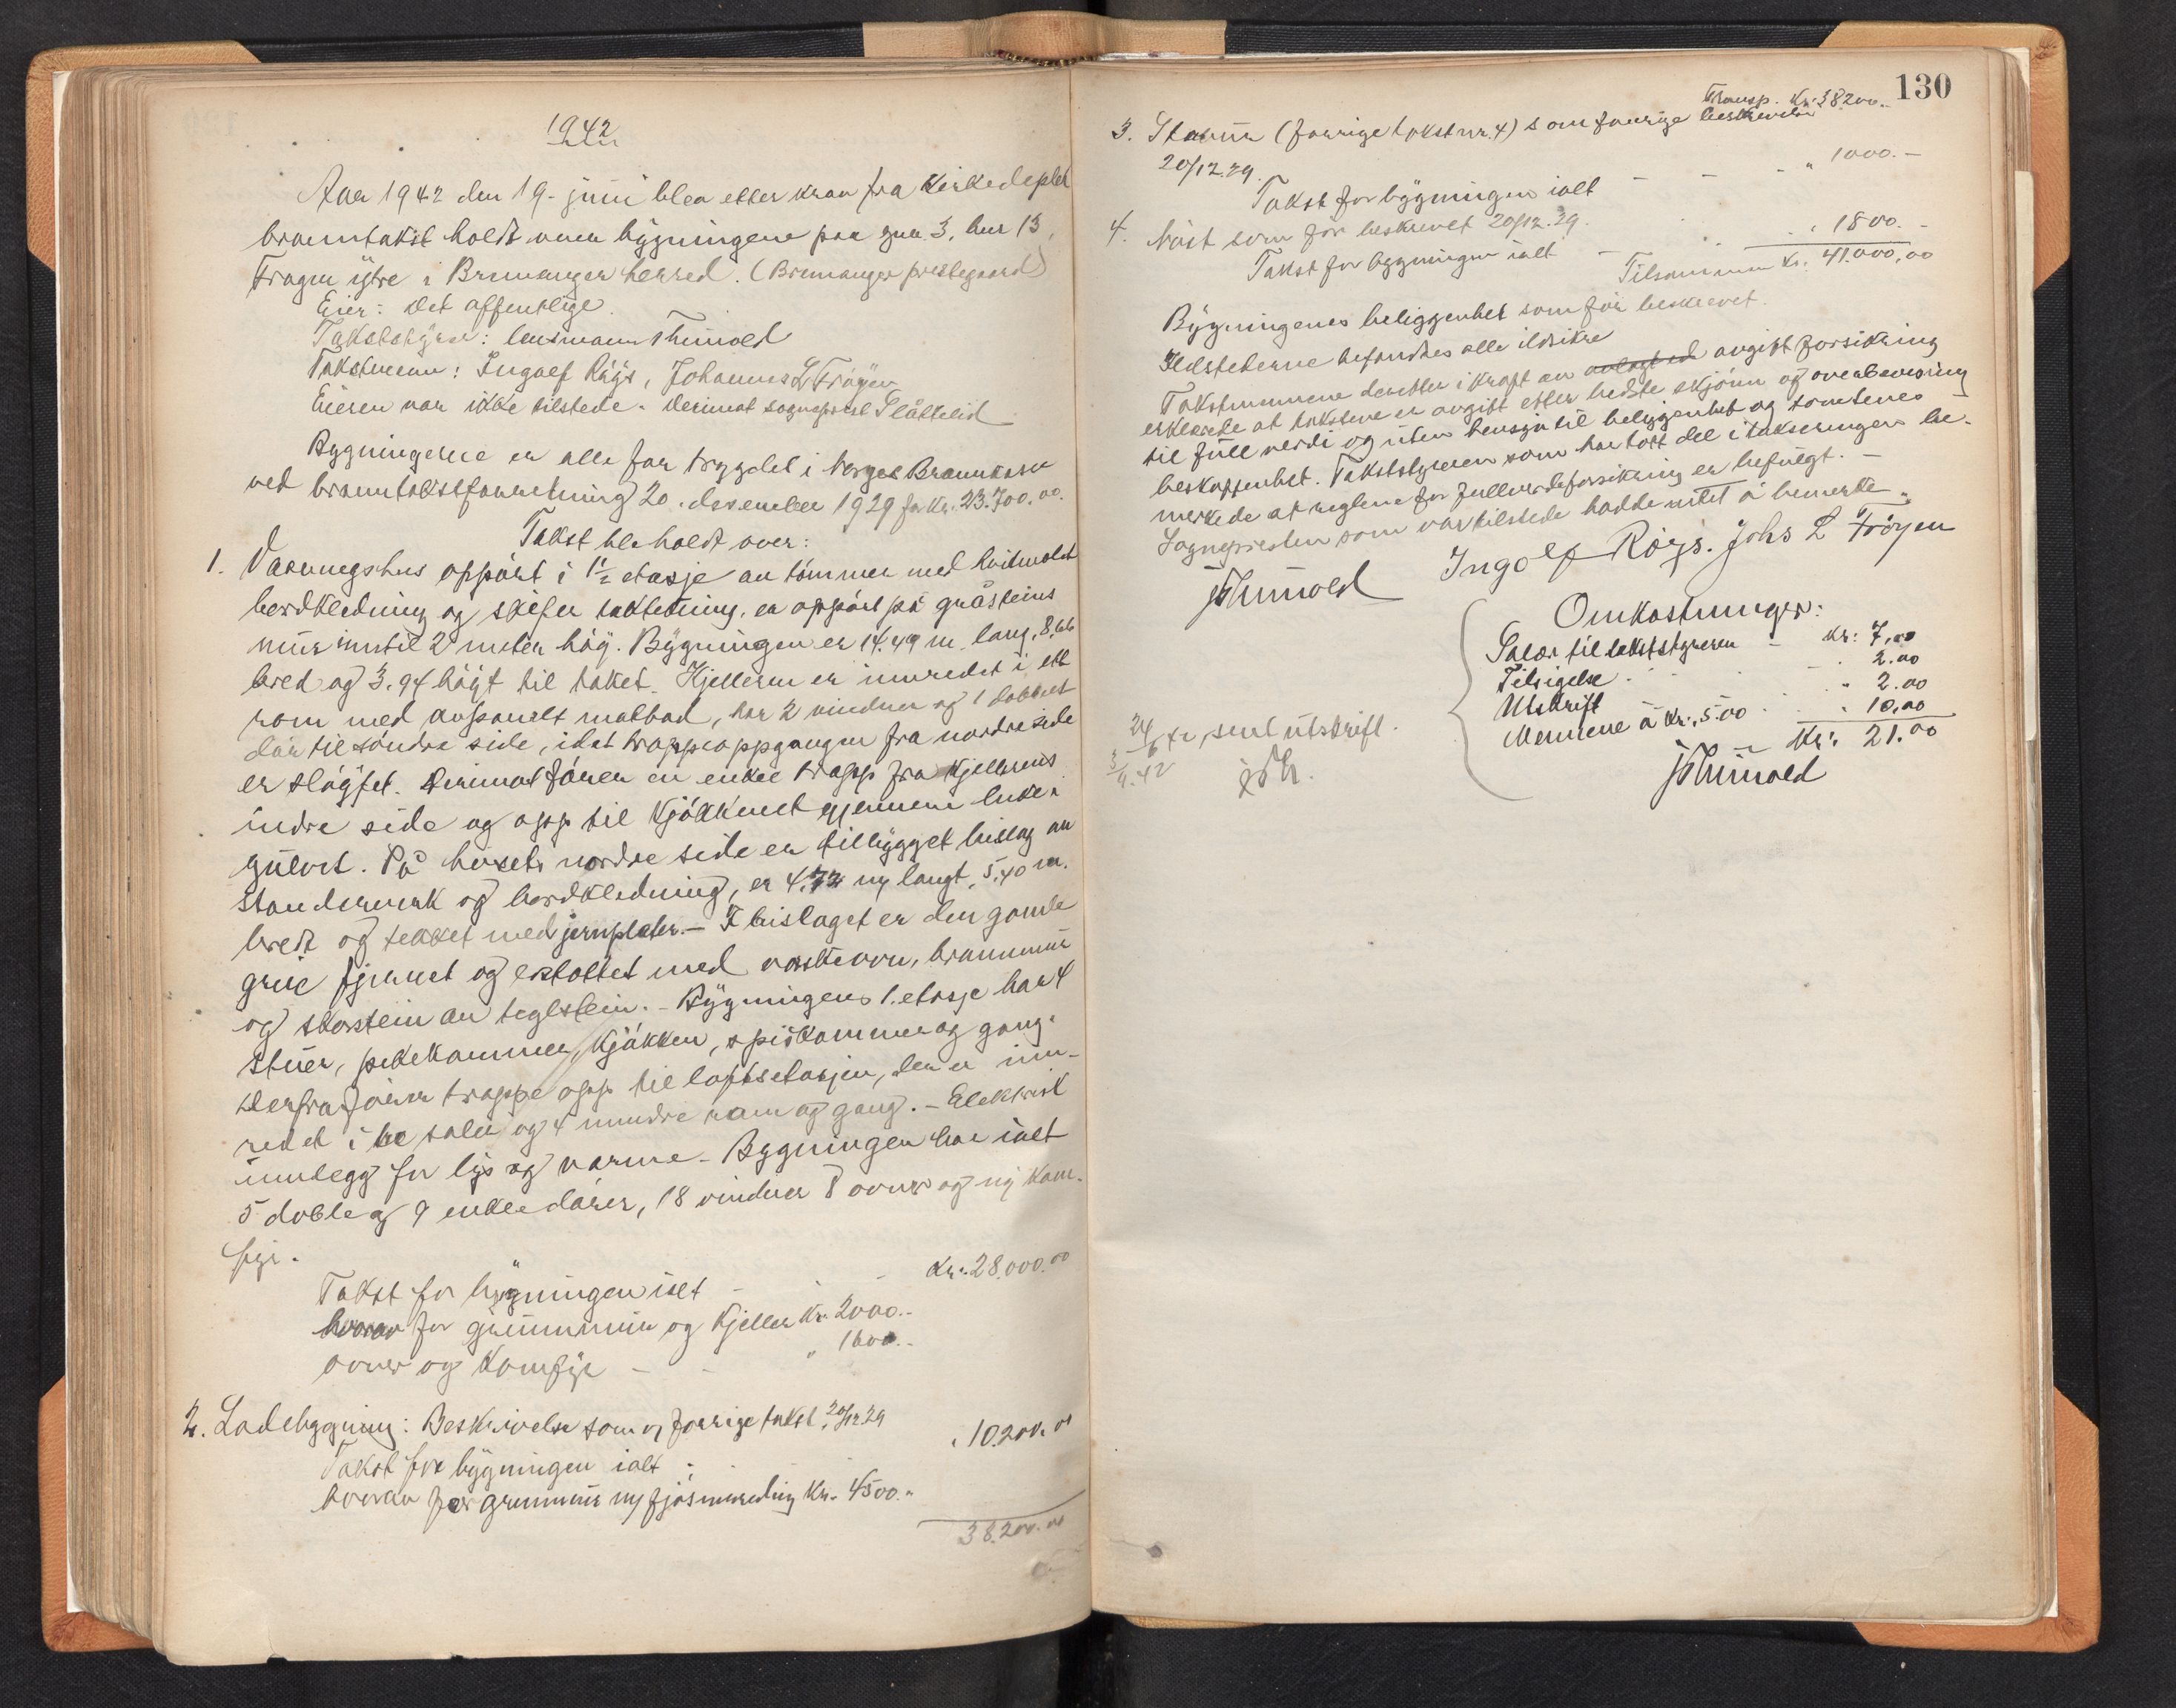 1942
Aar 1942 den 19. juni blev etter krav fra Kirkedeptet
branntakst holdt over bygningene paa gnr. 3, bnr 13,
Frøyen ytre i Bremanger herred. (Bremanger prestegaard)
Eier: Det offentlige.
Takstbestyrer: lensmann Thunold
Takstmenn: Ingolf Röys, Johannes L. Fröyen
Eieren var ikke tilstede. Derimot sogneprest Slåttelid
Bygningene er alle før trygdet i Norges Brannkasse
ved branntakstforretning 20. desember 1929 for Kr. 23.700.00.
Takst ble holdt over:
1. Vaaningshus oppört i 1½ etasje av tömmer med hvitmalt
bordkledning og skifer taktekning, er oppört på gråsteins
mur inntil 2 meter höy. Bygningen er 14.49 m. lang, 8,66
bred og 3.94 höyt til taket. Kjelleren er innredet i ett
rom med avpanelt matbod, har 2 vinduer og 1 dobbelt
dör til söndre side, idet trappeoppgangen fra nordre side
er slöyfet. Derimot förer en enkel trapp fra kjellerens
indre side og opp til kjökkenet gjennem luke i
gulvet. På husets nordre side er tilbygget bislag av
standerverk og bordkledning, er 4.72 m langt, 5.40 m.
bredt og tekket med jernplater. - I bislaget er den gamle
grue fjernet og erstattet med vaskeovn, brannmur
og skorstein av teglstein. - Bygningens 1. etasje har 4
stuer, pikekammer, kjökken, spiskammer og gang.
Derfra förer trappe opp til loftsetasjen, der er inn-
redet i en sal og 4 mindre rom og gang. - Elektrisk
innlegg for lys og varme. - Bygningen har ialt
5 doble og 9 enkle dörer, 18 vinduer 8 ovner og ny kom-
fyr.
Takst for bygningen ialt - - - Kr. 28.000.00
hvorav for grunnmur og kjeller Kr. 2000.-
ovner og komfyr - - " 1600.-
2. Ladebygning: Beskrivelse som v/ forrige takst 20/12 29
Takst for bygningen ialt : " 10.200.00
hvorav for grunnmur og fjösinnredning Kr. 4500.-
38.200.00
130
Transp. Kr. 38.200.-
3. Stabur (forrige takst nr. 4) som forrige beskrivelse
20/12.29.
Takst for bygningen ialt - - - " 1000.-
4. Nöst som för beskrevet 20/12.29.
Takst for bygningen ialt - " 1800.-
Tilsammen Kr. 41.000,00
Bygningenes beliggenhet som för beskrevet.
Ildstedene befandtes alle ildsikre
Takstmennene deretter i kraft av avlagt ed avgitt forsikring
erklærte at takstene er avgitt etter bedste skjönn og overbevisning
til full verdi og uten hensyn til beliggenhet og tomtenes
beskaffenhet. Takststyreren som har tatt del i takseringen be-
merkede at reglene for fullverdiforsikring er befulgt. -
Sognepresten som var tilstede hadde intet å bemerke.
JThunold Ingolf Röys. Johs L Fröyen
Omkostninger:
Salær til takststyreren - kr: 7,00
Tilsigelse - - - " 2.00
Utskrift - - " 2.00
Mennene à kr. 5.00 " 10,00
Kr. 21.00
JThunold
24/6 42 sent utskrift.
JTh.